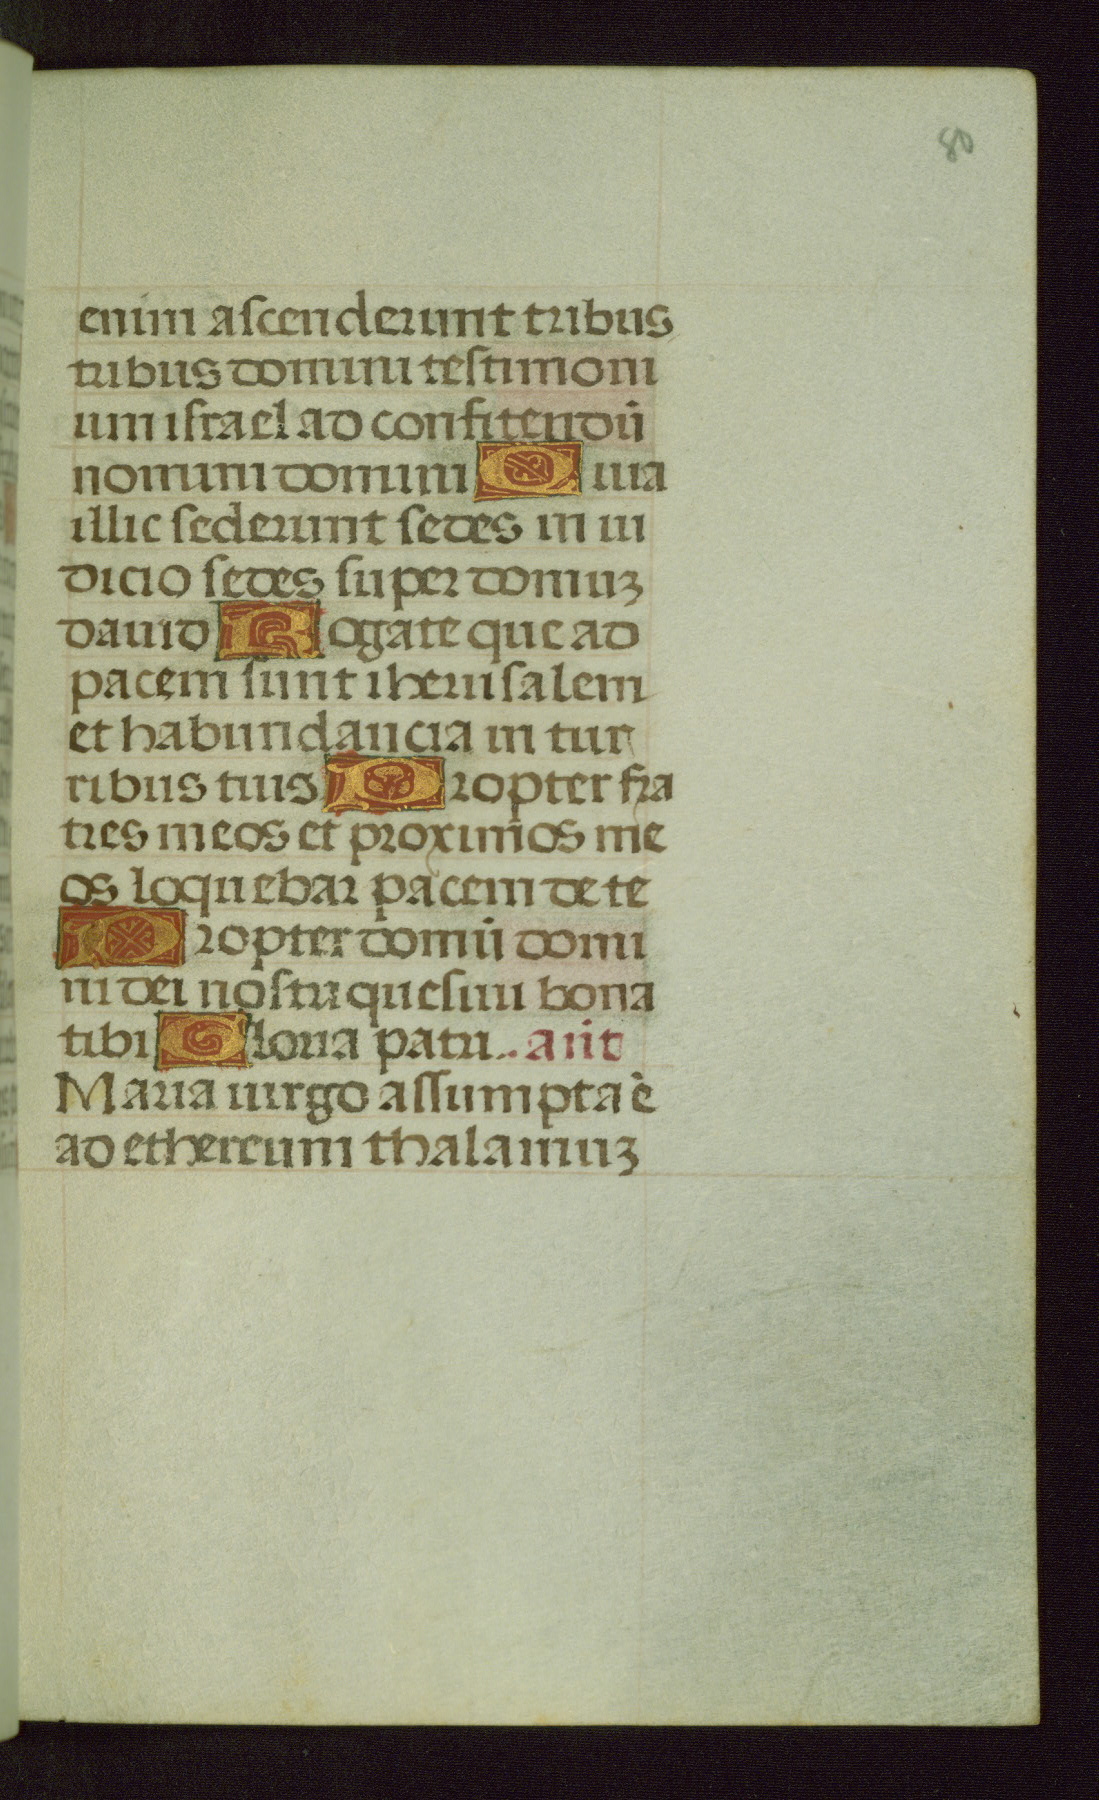 80
enim ascenderunt tribus
tribus domini testimoni
um israel ad confitendū
nomini domini Quia
illic sederunt sedes in iu
dicio sedes super domuʒ
dauid Rogate que ad
pacem sunt iherusalem
et habundancia in tur
ribus tuis Propter fra
tres meos et proximos me
os loquebar pacem de te
Propter domū domi
ni dei nostri quesiui bona
tibi Gloria patri.. añt
Maria uirgo assumpta ē
ad ethereum thalamuʒ